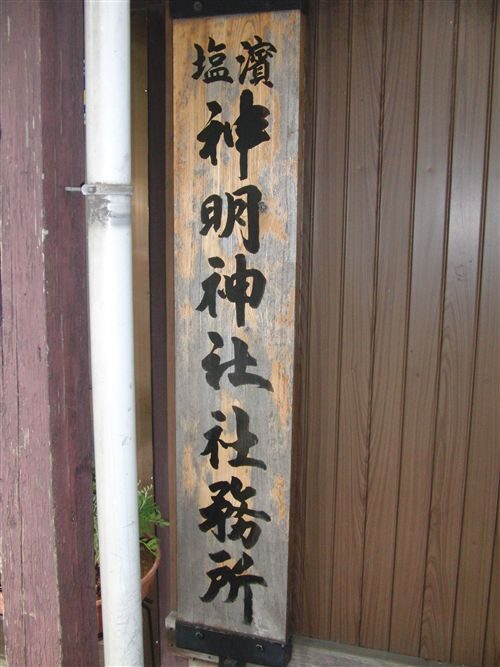 塩濱
神明神社社務所